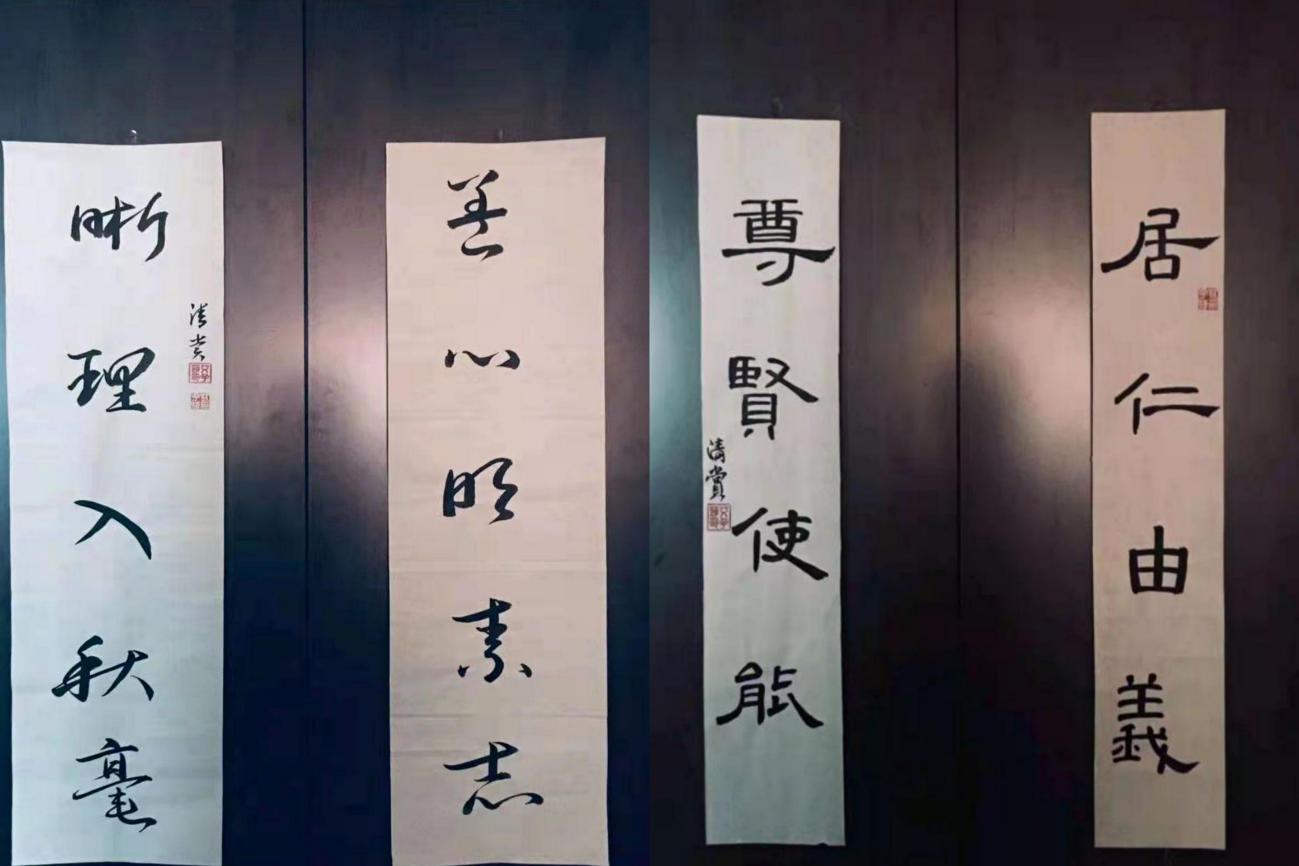 善心明素志
晰理入秋毫
清賞
居仁由義
尊賢使能
清賞